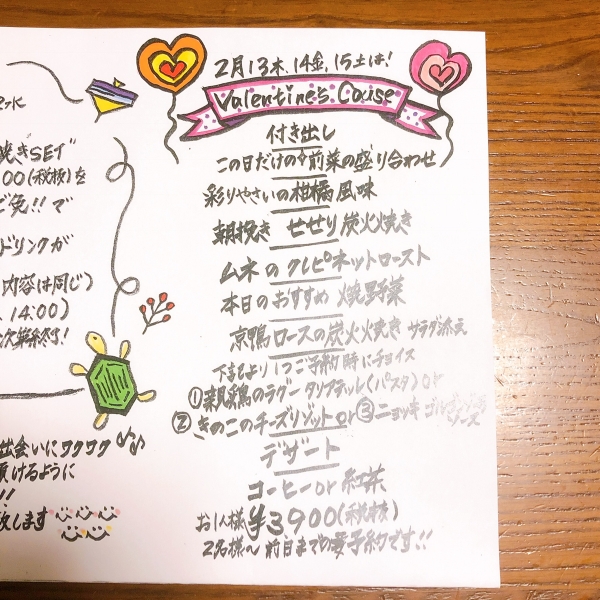 2月13木、14金、15土は!
Valentine's Couse
付き出し
この日だけの前菜の盛り合わせ
彩りやさいの柑橘風味
朝挽き せせり炭火焼き
ムネのクレピネットロースト
本日のおすすめ 焼野菜
京鴨ロースの炭火焼き サラダ添え
下記より1つご予約時にチョイス
①親鶏のラグー タリアテッレ(パスタ)or
②きのこのチーズリゾットor③ニョッキ ゴルゴンゾーラソース
デザート
コーヒーor紅茶
お1人様¥3900(税抜)
2名様〜前日までの要予約です!!
焼きSET"
00(税抜)を
ご免!!で
ドリンクが
内容は同じ)
14:00)
次第終了!
出会いにワクワク♪♪
頂けるように
!!
致します